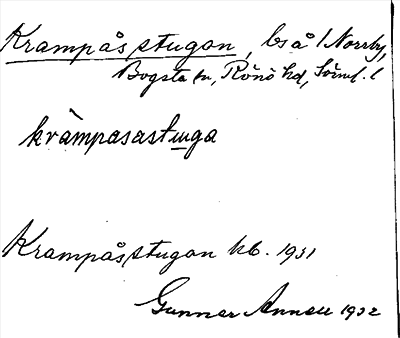 Krampåsstugan, bs å 1 Norrby,
Bogsta sn, Rönö hd, Söml. l
kràmpasastuga
Krampåsstugan kb. 1931
Gunnar Annell 1932